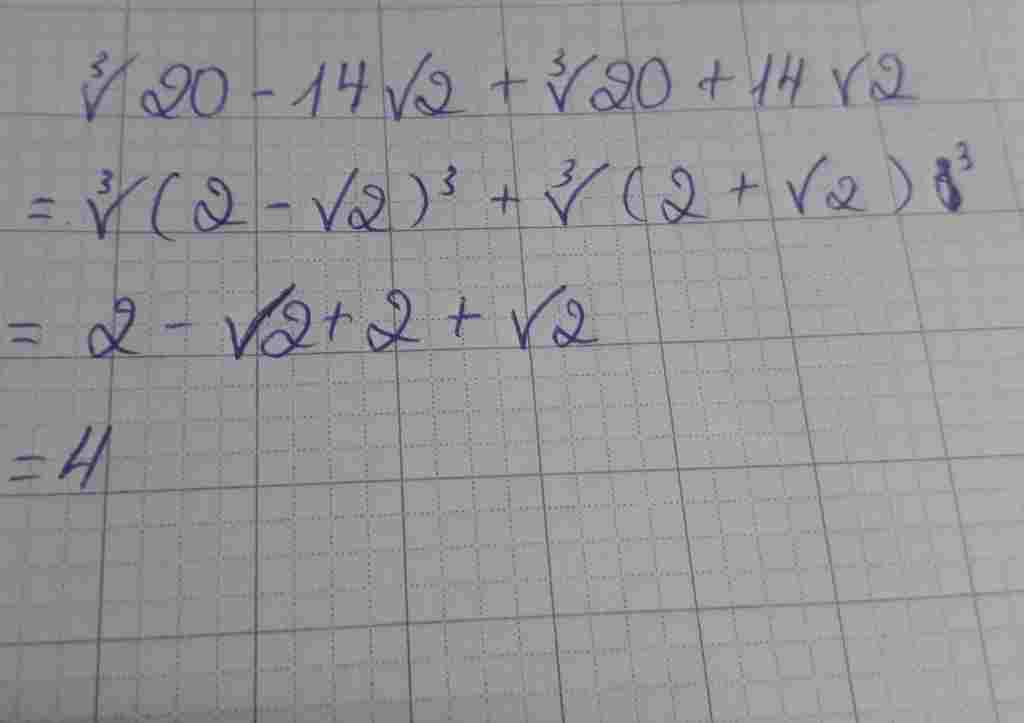 ∛20 - 14√2 + ∛20 + 14√2
= ∛(2 - √2)³ + ∛(2 + √2)³
= 2 - √2 + 2 + √2
= 4